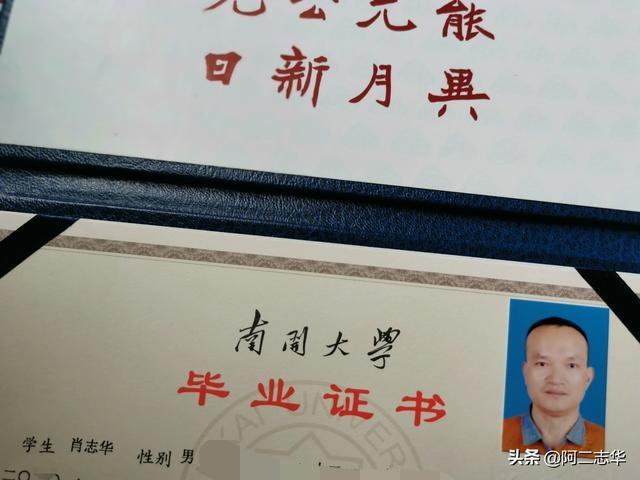 允公允能
日新月異
南開大學
毕业证书
学生 肖志华 性别 男
二〇
头条 @阿二志华